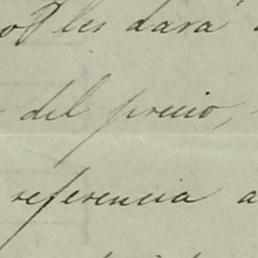 les dará
del precio,
referencia a